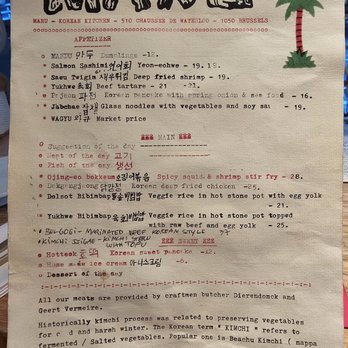 MARU - KOREAN KITCHEN - 510 CHAUSSEE DE WATERLOO - 1050 BRUSSELS
APPETIZER
MANDU 만두 Dumplings -12.
Salmon Sashimi 연어회 Yeon-eohwe - 19.
Saeu Twigim 새우튀김 Deep fried shrimp - 19.
Yukhwe 육회 Beef tartare - 21
Pajeon 파전 Korean pancake with spring onion & sea food - 16.
Jabchae 잡채 Glass noodles with vegetables and soy sau - 19.
WAGYU 와규 Market price
MAIN
Suggestion of the day
Meat of the day 고기
Fish of the day 생선
Ojing-eo bokkeum 오징어볶음 Spicy squid & shrimp stir fry - 28.
Dakgangjong 닭강정 Korean deep fried chicken -25.
Dolsot Bibimbap 돌솥비빔밥 Veggie rice in hot stone pot with egg yolk - 21.
Yukhwe Bibimbap 육회비빔밥 Veggie rice in hot stone pot topped with raw beef and egg yolk -25.
BULGOGI - MARINATED BEEF KOREAN STYLE 27
KIMCHI JJIGAE - KIMCHI STEW WITH TOFU
SWEET
Hotteok 호떡 Korean sweet pancake -12.
Home made ice cream 아이스크림 -6.
Dessert of the day
All our meats are provided by craftmen butcher Dierendonck and
Geert Vermeire.
Historically kimchi process was related to preserving vegetables
for and harsh winter. The Korean term " KIMCHI " refers to
fermented / Salted vegetables. Popular one is Beachu Kimchi ( nappa